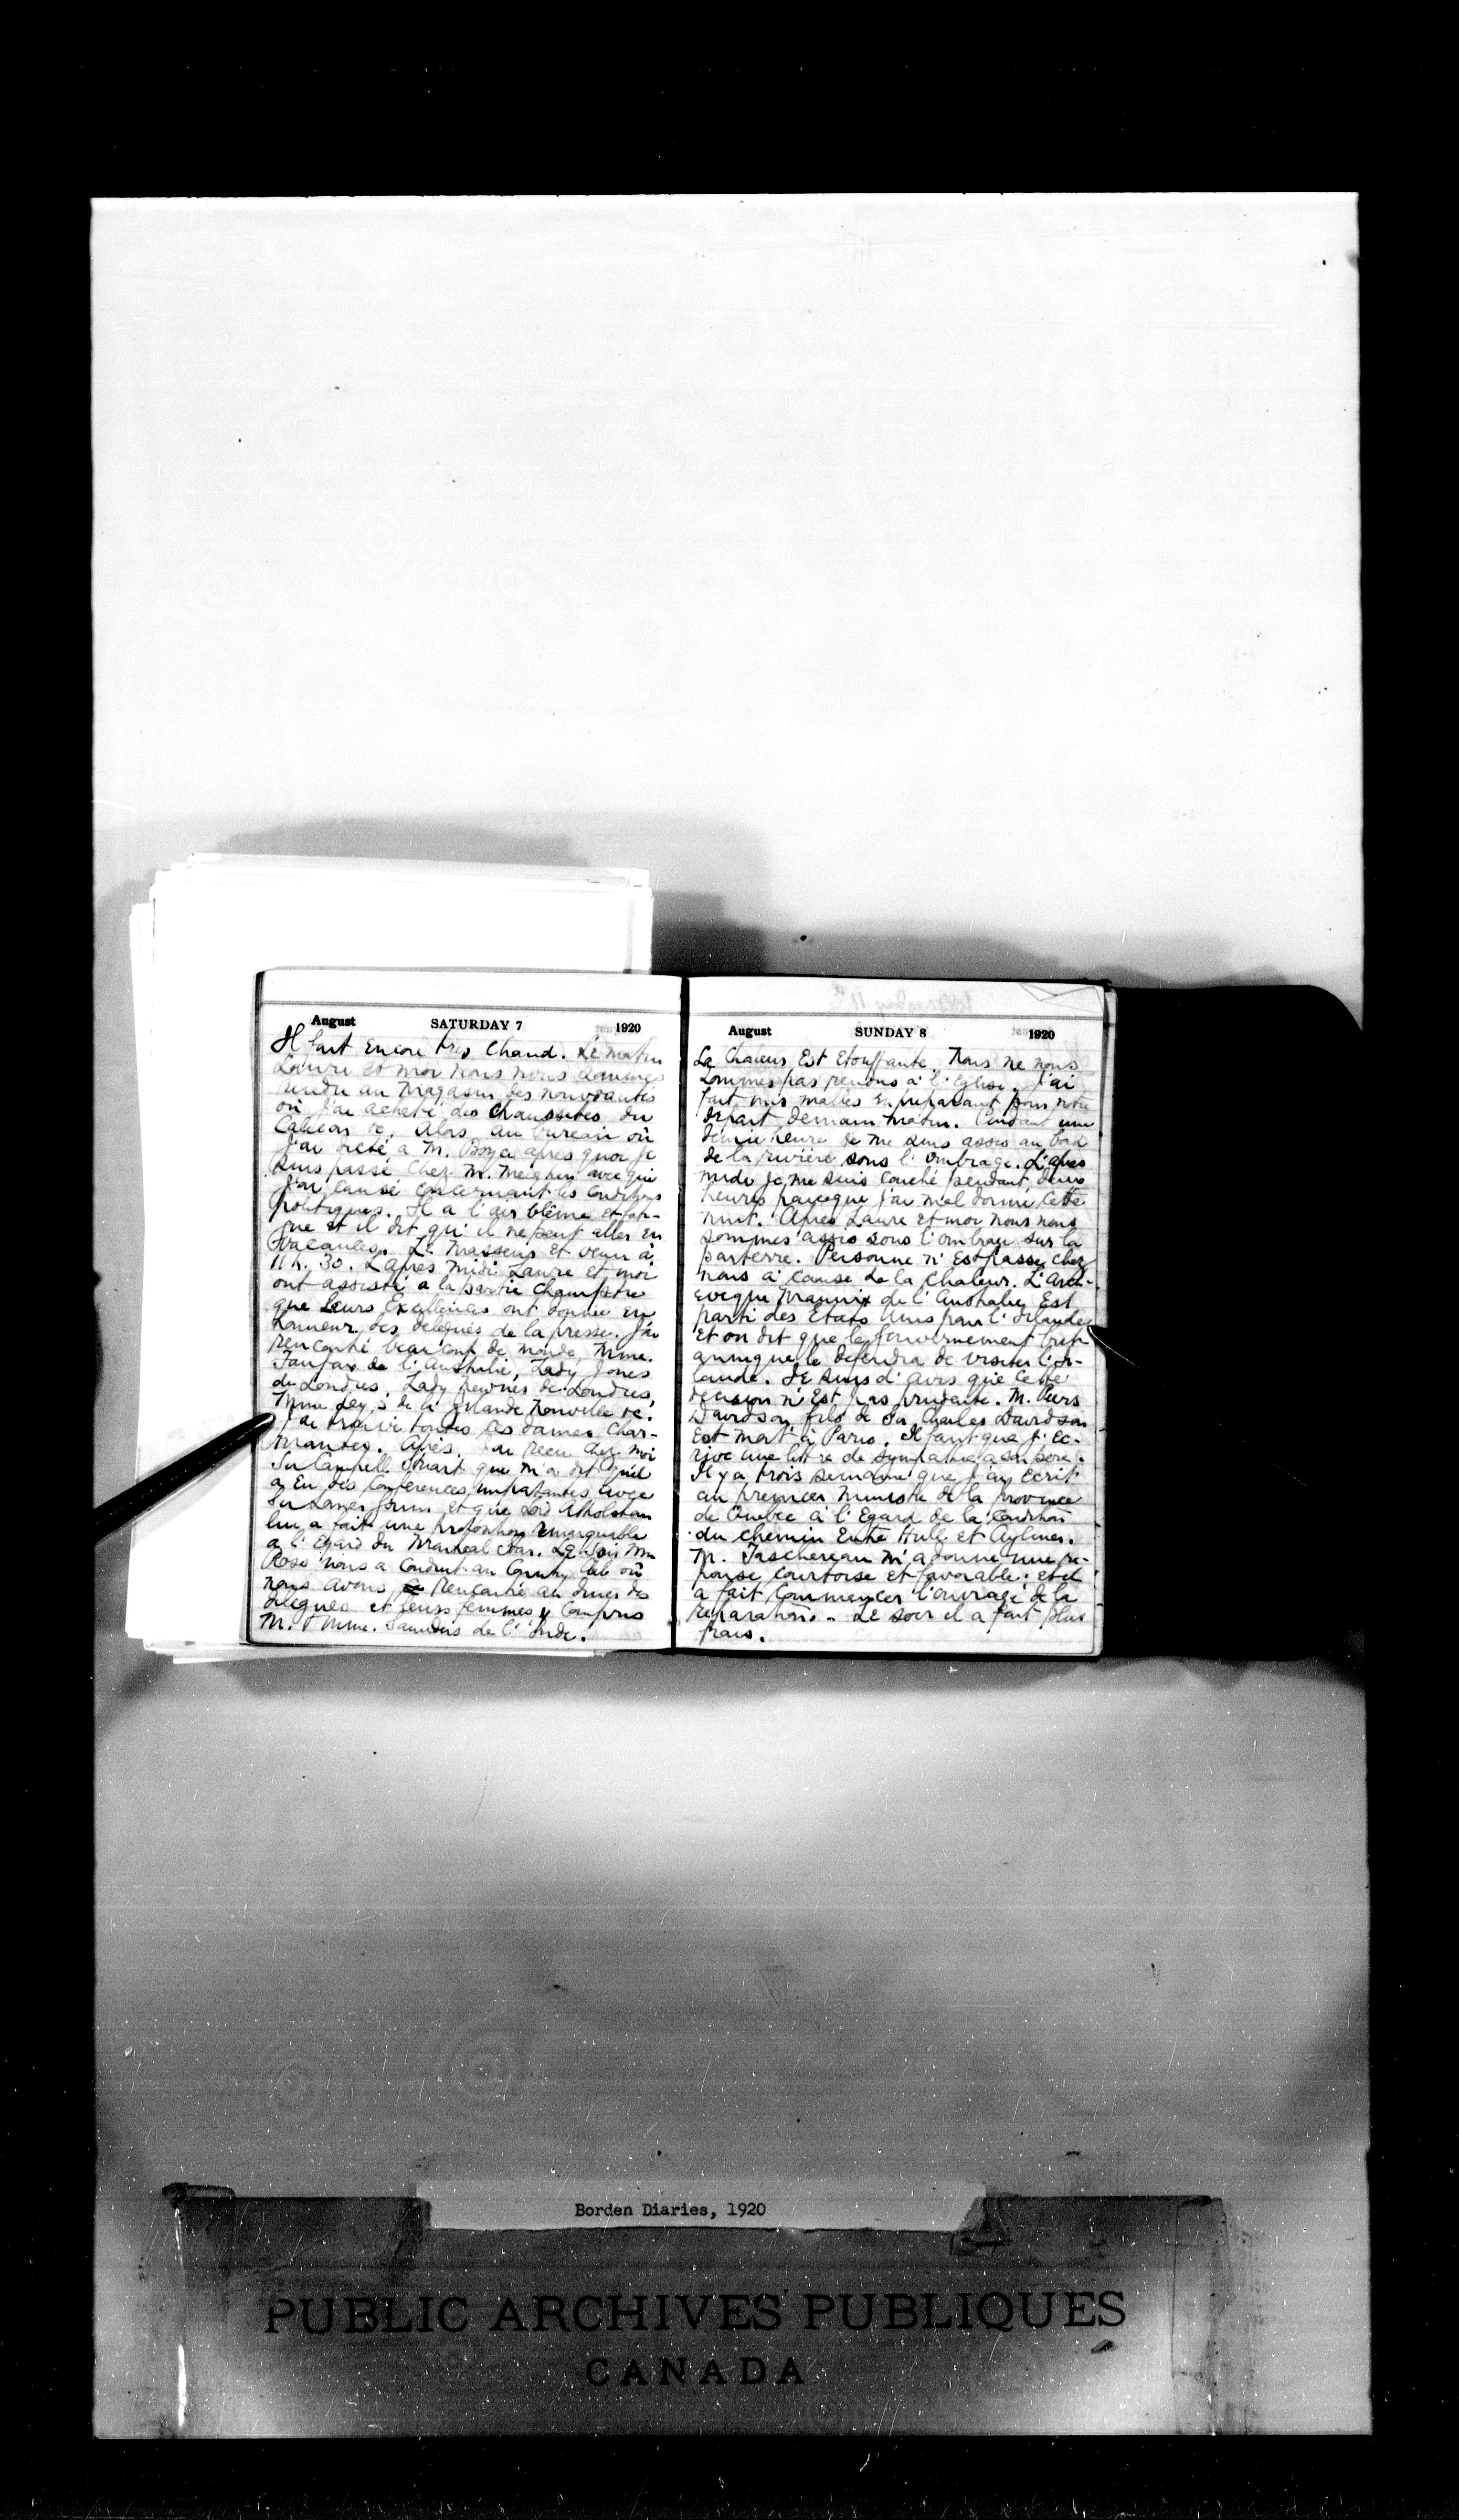 August SATURDAY 7 1920
Il fait encore tres chaud. Le matin
Laure et moi nous nous sommes
rendu au magasin des nouveautés
où j'ai acheté des chaussettes du
Caleçon &c. Alors au bureau où
j'ai dicté à M. Boyce après quoi je
suis passé chez M. Meighen avec qui
j'ai causé concernant les conditions
politiques. Il a l'air blême et fati-
gué et il dit qu'il ne peut aller en
vacances. Le masseur est venu à
11 h. 30. L'apres midi Laure et moi
ont assisté a la partie champetre
que Leurs Excellences ont donnée en
honneur des delegués de la presse. J'ai
rencontré beaucoup de monde, Mme.
Fairfax de l'Australie, Lady Jones
de Londres, Lady Newnes de Londres,
Mme Leys de la Zelande Nouvelle &c.
J'ai trouvé toutes les dames char-
mantes. Après, j'ai reçu chez moi
Sir Campbell Stuart que m'a dit qu'il
a eu des conferences importantes avec
Sir James Dunn et que Lord Atholstan
lui a fait une proposition remarquable
a l'egard du Montreal Star. Le soir Mme
Ross nous a conduit au Country Club où
nous avons rencontré au diner des
delegués et leurs femmes y compris
M. & Mme. Saunders de l'Inde.
August SUNDAY 8 1920
La chaleur est etouffante. Nous ne nous
sommes pas rendus à l'Eglise. J'ai
fait mis malles en preparant pour notre
depart demain matin. Pendant une
demie heure je me suis assis au bord
de la rivière sous l'ombrage. L'apres
midi je me suis couché pendant deux
heures parceque j'ai mal dormi cette
nuit. Apres Laure et moi nous nous
sommes assis sous l'ombrage sur la
parterre. Personne n'est passé chez
nous à cause de la chaleur. L'Arch-
eveque Mannix de l'Australie est
parti des Etats Unis pour l'Irlande
et on dit que le gouvernement brit-
annique le defendra de visiter l'Ir-
lande. Je suis d'avis que cette
decision n'est pas prudente. M. Peers
Davidson fils de Sir Charles Davidson
est mort à Paris. Il faut que j'ec-
rive une lettre de sympathie a son père.
Il y a trois semaine que j'ai ecrit
au premier ministre de la province
de Quebec à l'egard de la condition
du chemin entre Hull et Aylmer.
M. Taschereau m'a donné une re-
ponse courtoise et favorable; et il
a fait commencer l'ouvrage de la
reparation. Le soir il a fait plus
frais.
Borden Diaries, 1920
PUBLIC ARCHIVES PUBLIQUES
CANADA